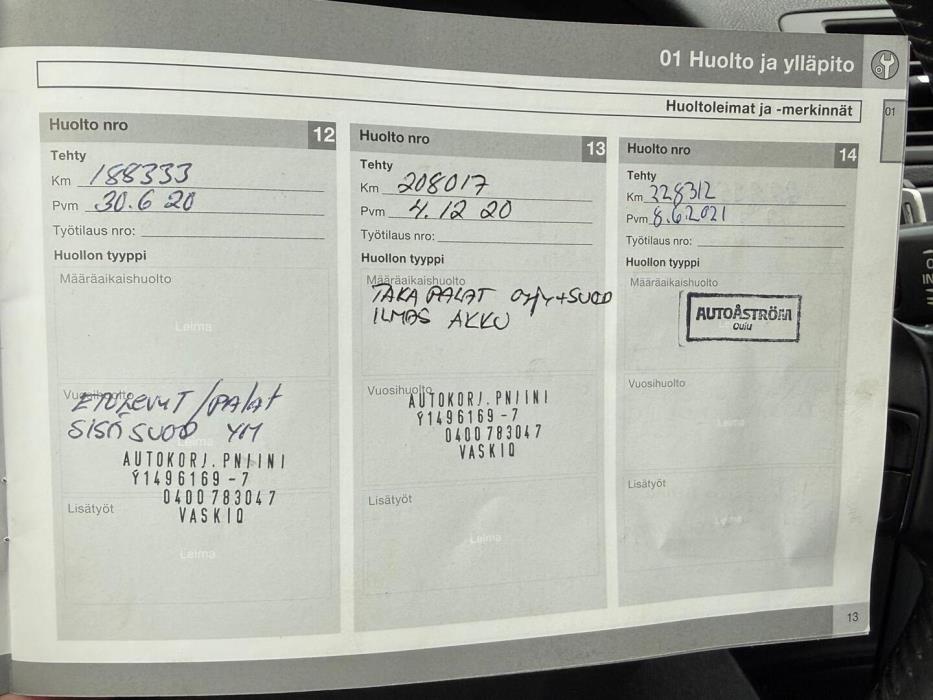 01 Huolto ja ylläpito
Huoltoleimat ja -merkinnät
01
Huolto nro 12
Tehty
Km 188333
Pvm 30.6 20
Työtilaus nro:
Huollon tyyppi
Määräaikaishuolto
Leima
Vuosihuolto
ETULEVYT/PALAT
SISÄ SUOD YM
Leima
AUTOKORJ. PNIINI
Y1496169-7
0400783047
VASKIO
Lisätyöt
Leima
Huolto nro 13
Tehty
Km 208017
Pvm 4.12 20
Työtilaus nro:
Huollon tyyppi
Määräaikaishuolto
TAKA PALAT öljy+SUOD
ILMAS AKKU
Vuosihuolto
AUTOKORJ. PNIINI
Y1496169-7
0400783047
VASKIO
Lisätyöt
Leima
Huolto nro 14
Tehty
Km 228312
Pvm 8.6.2021
Työtilaus nro:
Huollon tyyppi
Määräaikaishuolto
AUTOÅSTRÖM
Oulu
Vuosihuolto
Leima
Lisätyöt
Leima
13